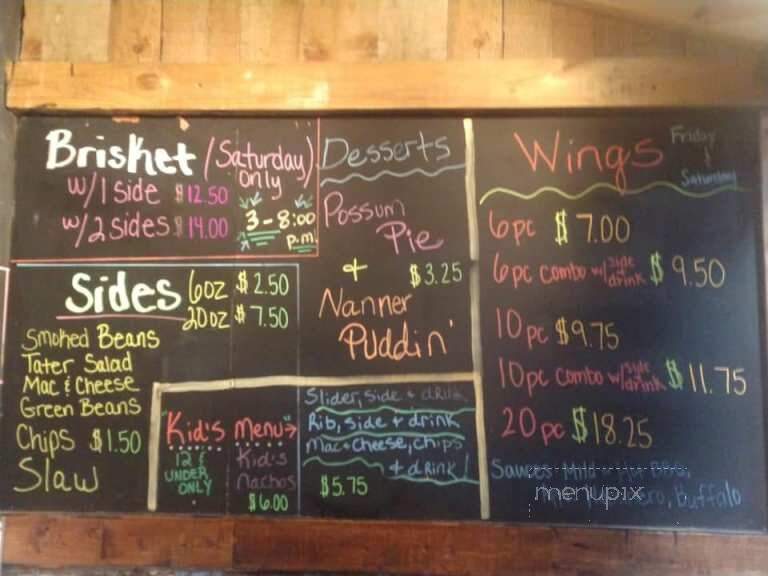 Brisket (Saturday only)
w/1 side $12.50
w/2 sides $14.00
3-8:00 p.m.
Sides 6oz $2.50
20oz $7.50
Smoked Beans
Tater Salad
Mac & Cheese
Green Beans
Chips $1.50
Slaw
Desserts
Possum
Pie
+ $3.25
Nanner
Puddin'
"Kid's Menu"→
12 &
UNDER
ONLY
Kid's
Nachos
$6.00
Slider, side + drink
Rib, side & drink
Mac+Cheese, chips
+ drink
$5.75
Wings Friday
&
Saturday
6pc $7.00
6pc combo w/side + drink $9.50
10pc $9.75
10pc combo w/side + drink $11.75
20pc $18.25
Sauces Mild BBQ,
Buffalo
menupix